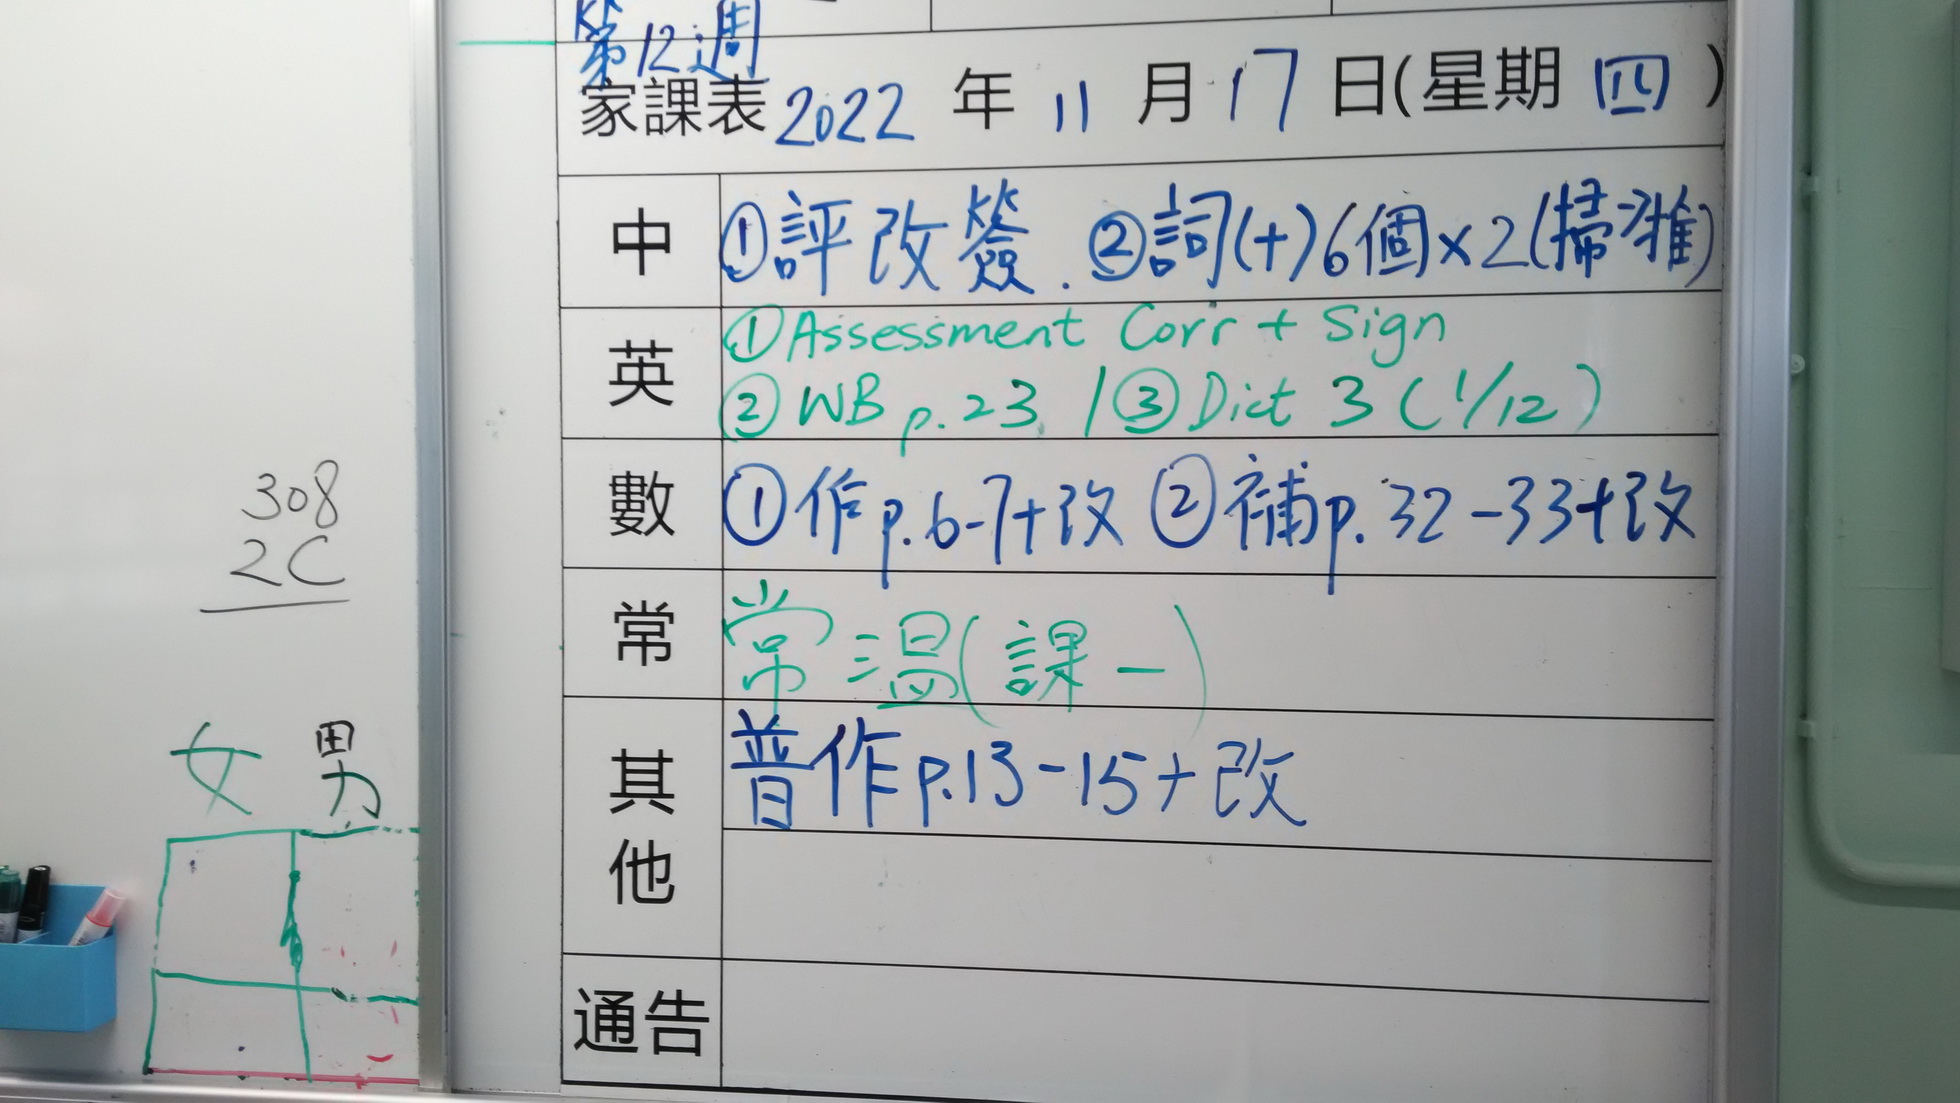 第12週
家課表 2022 年 11 月 17 日(星期 四 )
中 ①評改簽. ②詞(+)6個×2(掃~雅)
英 ①Assessment Corr + Sign
②WB p.23 / ③Dict 3 (1/12)
數 ①作p.6-7+改 ②補p.32-33+改
常 常溫(課一)
其他 普作p.13-15+改
通告
308
2C
女 男